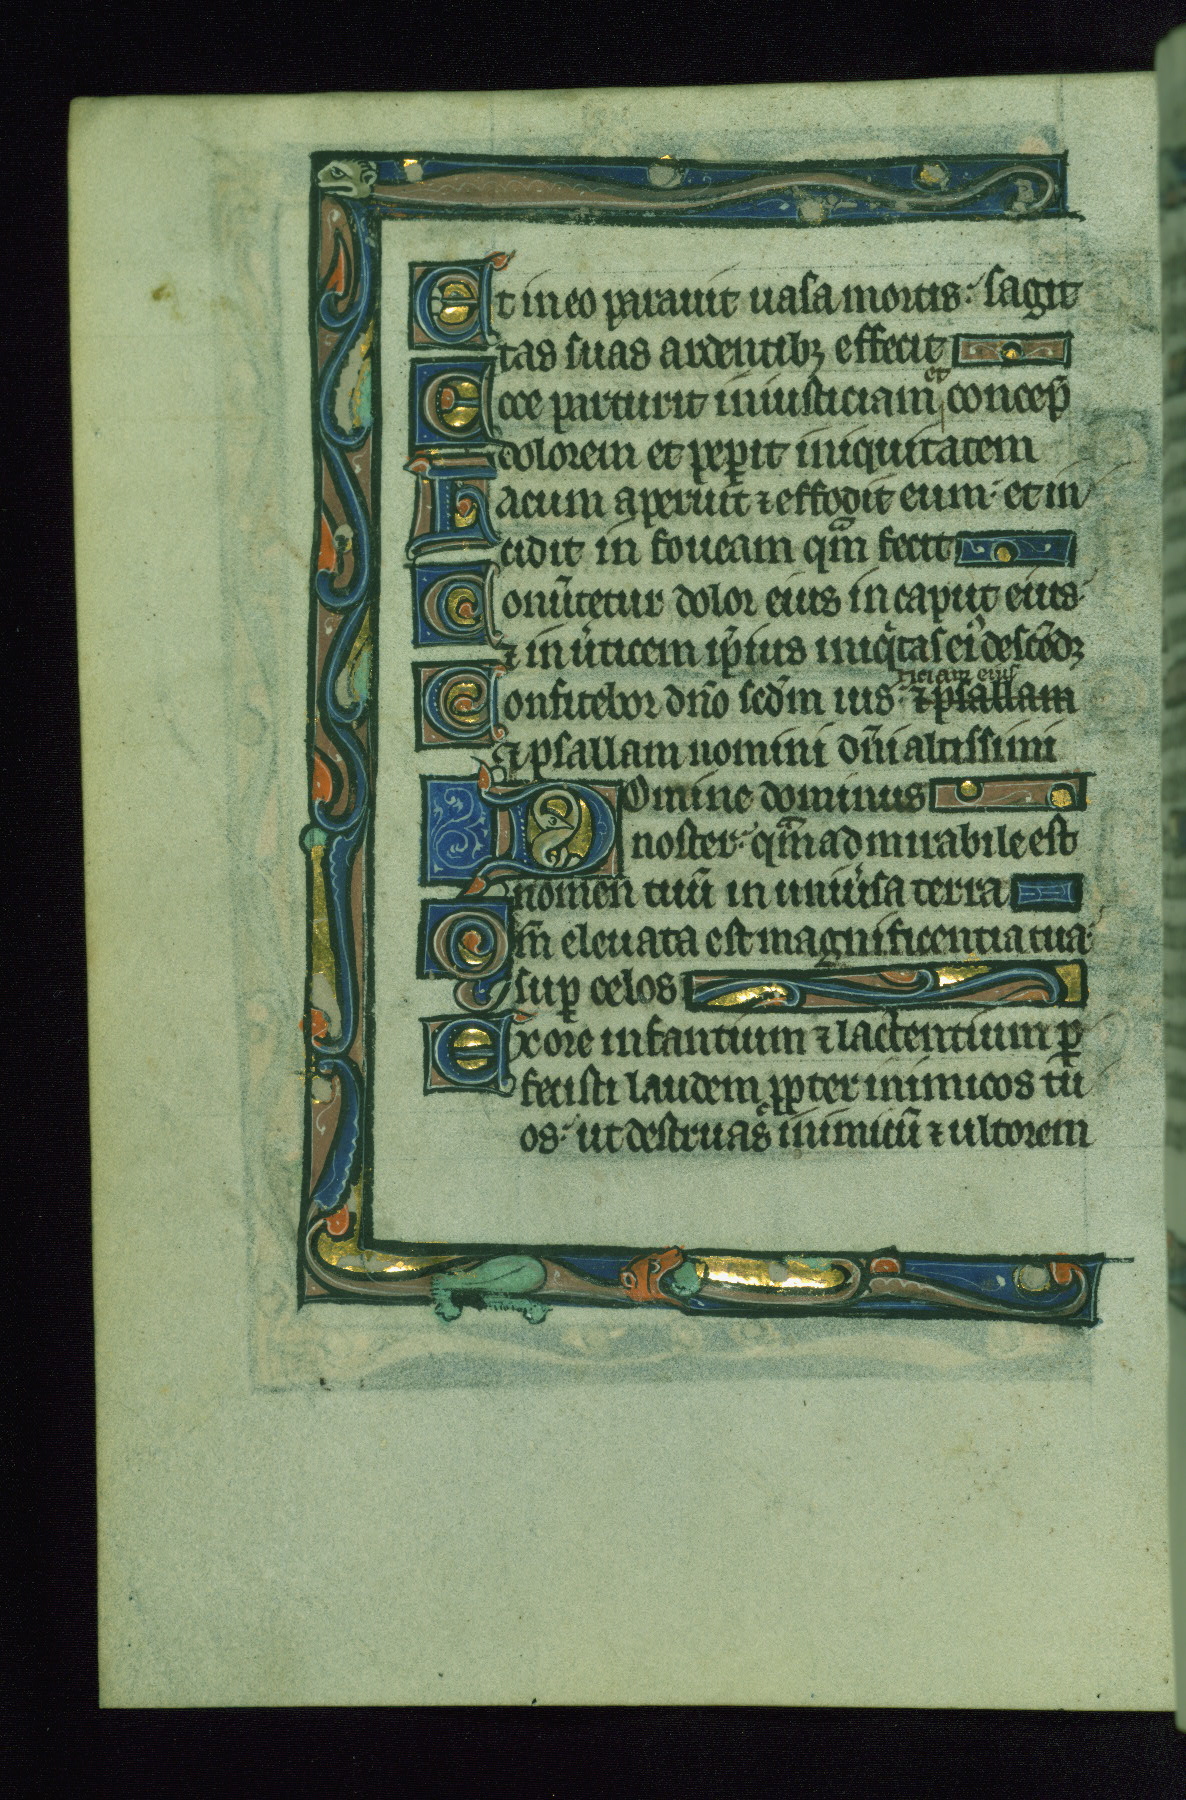 Et in eo parauit uasa mortis: sagit
tas suas ardentibꝫ effecit
et
Ecce parturit iniusticiam concep̄
dolorem et peꝑit iniquitatem
Lacum aperuit ⁊ effodit eum: et in
cidit in foueam qm̄ fecit
Conu̅tetur dolor eius in caput eius:
⁊ in u̅ticem ip̄ius iniq̇tas ei᷒ desce̅dꝫ
ticiam eius
Confitebor dn̄o scdm̄ ius ⁊ psallam
⁊ psallam nomini dn̄i altissimi
Domine dominus
noster: qm̄ admirabile est
nomen tuū in uniu̅sa terra
Qm̄ eleuata est magnificentia tua:
suꝑ celos
Ex ore infantium ⁊ lactentium ꝑ
fecisti laudem ꝓpter inimicos tu
os: ut destruas inimicū ⁊ ultorem